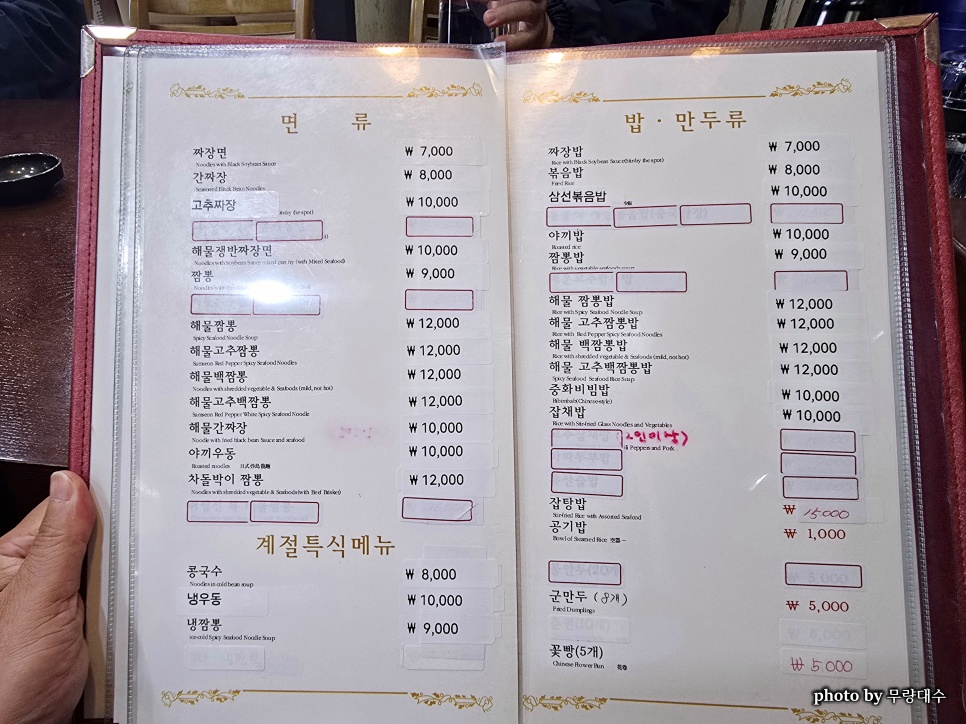 면 류
짜장면 ₩ 7,000
Noodles with Black Soybean Sauce
간짜장 ₩ 8,000
Seasoned Black Bean Noodles
고추짜장 ₩ 10,000
해물쟁반짜장면 ₩ 10,000
Noodles with Soybean Sauce mixed pan fry (with Mixed Seafood)
짬뽕 ₩ 9,000
해물짬뽕 ₩ 12,000
Spicy Seafood Noodle Soup
해물고추짬뽕 ₩ 12,000
Samseon Red Pepper Spicy Seafood Noodles
해물백짬뽕 ₩ 12,000
Noodles with shredded vegetable & Seafoods (mild, not hot)
해물고추백짬뽕 ₩ 12,000
Samseon Red Pepper White Spicy Seafood Noodle
해물간짜장 ₩ 10,000
Noodle with fried black bean Sauce and seafood
야끼우동 ₩ 10,000
Roasted noodles
차돌박이 짬뽕 ₩ 12,000
Noodles with shredded vegetable & Seafoods (with Beef Brisket)
계절특식메뉴
콩국수 ₩ 8,000
Noodles in cold bean soup
냉우동 ₩ 10,000
냉짬뽕 ₩ 9,000
ice-cold Spicy Seafood Noodle Soup
밥 · 만두류
짜장밥 ₩ 7,000
Rice with Black Soybean Sauce
볶음밥 ₩ 8,000
Fried Rice
삼선볶음밥 ₩ 10,000
야끼밥 ₩ 10,000
Roasted rice
짬뽕밥 ₩ 9,000
Rice with vegetable seafoods soup
해물 짬뽕밥 ₩ 12,000
Rice with Spicy Seafood Noodle Soup
해물 고추짬뽕밥 ₩ 12,000
Rice with Red Pepper Spicy Seafood Noodles
해물 백짬뽕밥 ₩ 12,000
Rice with shredded vegetable & Seafoods (mild, not hot)
해물 고추백짬뽕밥 ₩ 12,000
Spicy Seafood Seafood Rice Soup
중화비빔밥 ₩ 10,000
Bibimbab(Chinese-style)
잡채밥 ₩ 10,000
Rice with Stir-fried Glass Noodles and Vegetables
2인이상)
Peppers and Pork
잡탕밥 ₩ 15000
Stir-fried Rice with Assorted Seafood
공기밥 ₩ 1,000
Bowl of Steamed Rice
군만두 (8개) ₩ 5,000
Fried Dumplings
꽃빵(5개) ₩ 5,000
Chinese Flower Bun 花卷
photo by 무랑대수